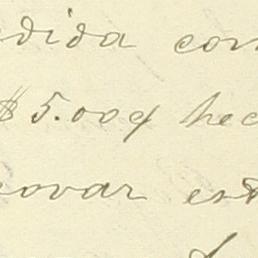 dida con
$5.00 q hec
ovar est